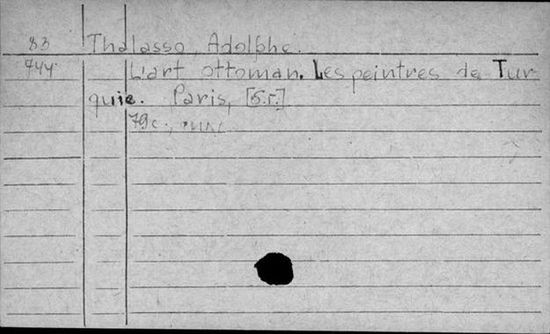 83 Thalasso, Adolphe.
744 L'art ottoman. Les peintres de Tur-
quie. Paris, [б.г.]
79c.; илл.